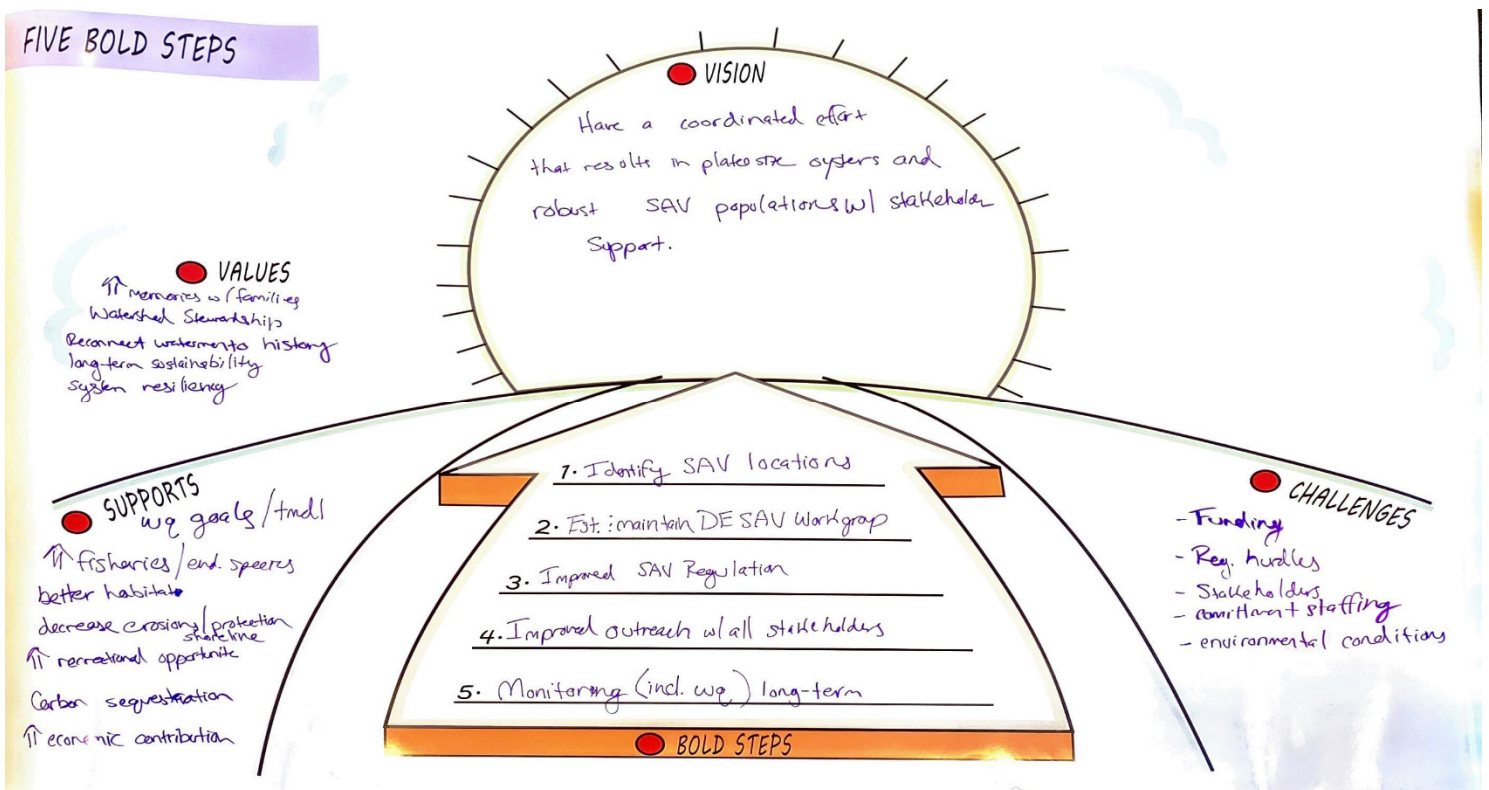 FIVE BOLD STEPS
VISION
Have a coordinated effort
that results in plate size oysters and
robust SAV populations w/ stakeholder
Support.
VALUES
⇑ memories w/ families
Watershed Stewardship
Reconnect watermen to history
long-term sustainability
system resiliency
SUPPORTS
wq goals/tmdl
⇑ fisheries/end. species
better habitat
decrease erosion/protection
shoreline
⇑ recreational
Carbon sequestration
⇑ economic contribution
1. Identify SAV locations
2. Est. : maintain DE SAV Workgroup
3. Improved SAV Regulation
4. Improved outreach w/ all stakeholders
5. Monitoring (incl. wq) long-term
BOLD STEPS
CHALLENGES
- Funding
- Reg. hurdles
- Stakeholders
- commitment staffing
- environmental conditions